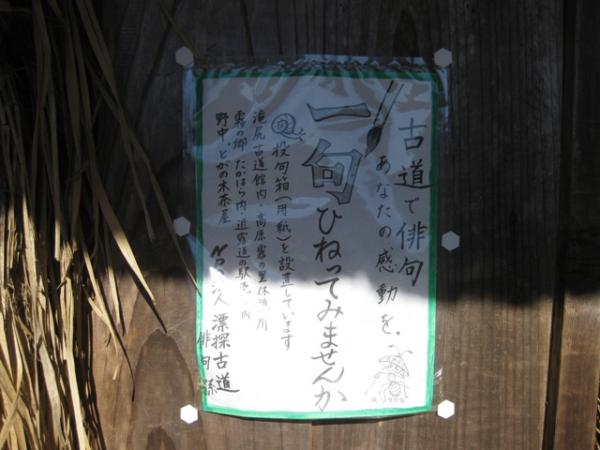 古道で俳句
あなたの感動を、
一句ひねってみませんか
投句箱(用紙)を設置しています
滝尻古道館内・高原霧の里休憩所
霧の郷たかはら内・近露道の駅売店内
野中・とがの木茶屋
漂探古道
俳句係